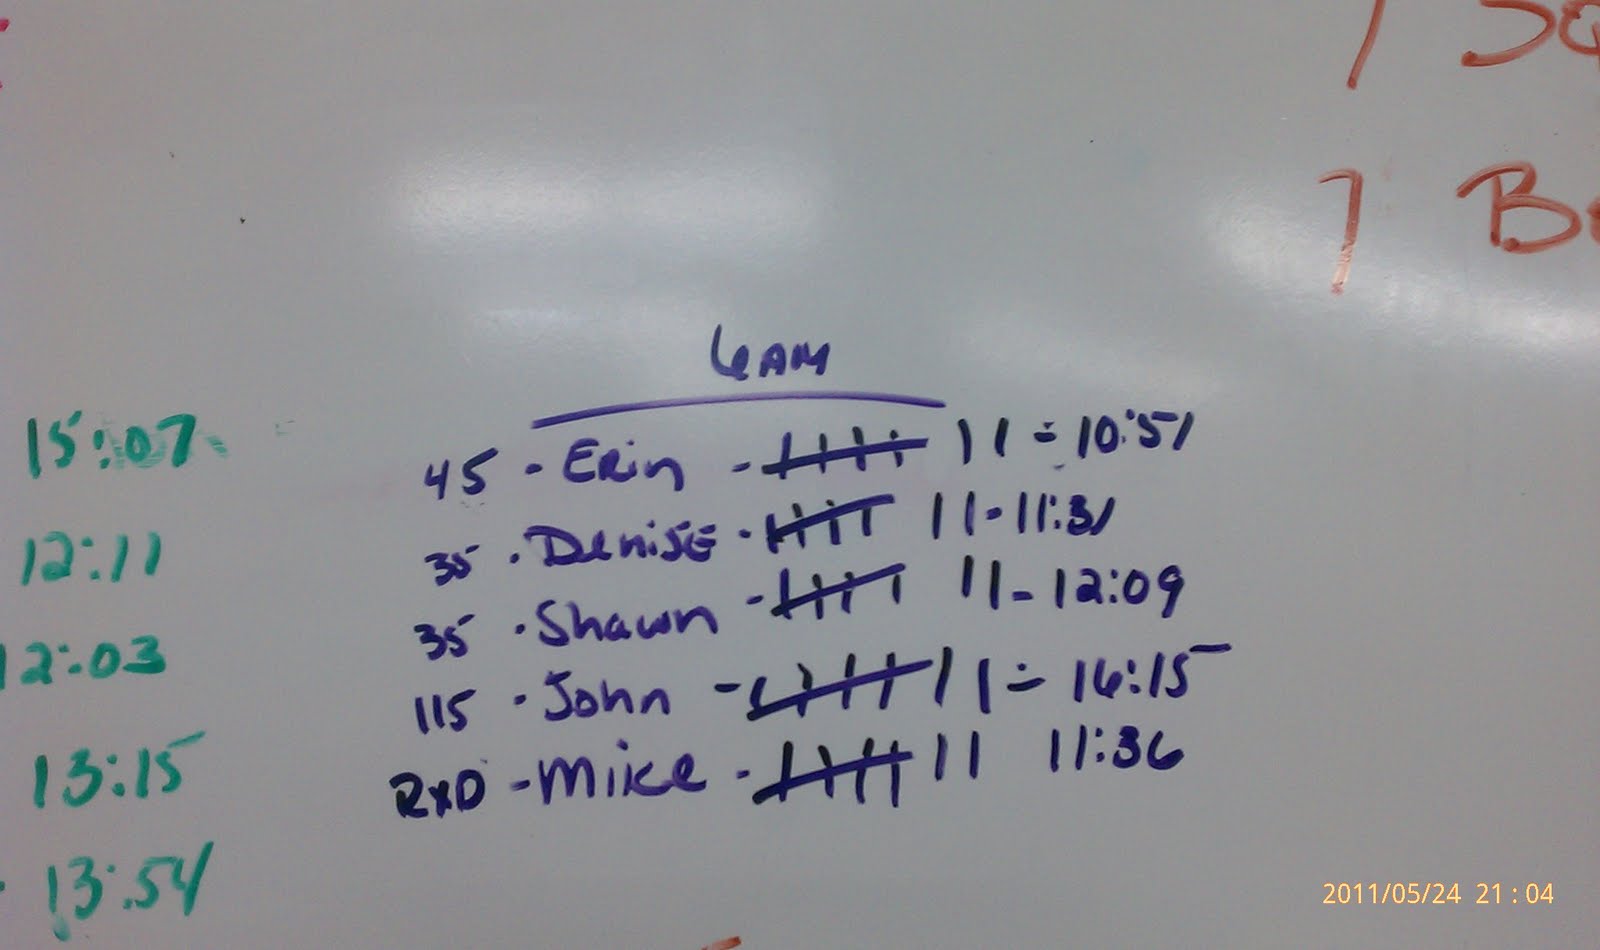 1 Sq
1 B
6AM
45 - Erin - 𝍸 11 - 10:51
35 - Denise - 𝍸 11 - 11:31
35 - Shawn - 𝍸 11 - 12:09
115 - John - 𝍸 11 - 16:15
RXD - Mike - 𝍸 11 11:36
15:07
12:11
12:03
13:15
13:54
2011/05/24 21:04